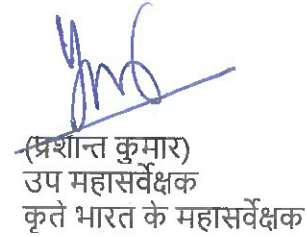 (प्रशान्त कुमार)
उप महासर्वेक्षक
कृते भारत के महासर्वेक्षक